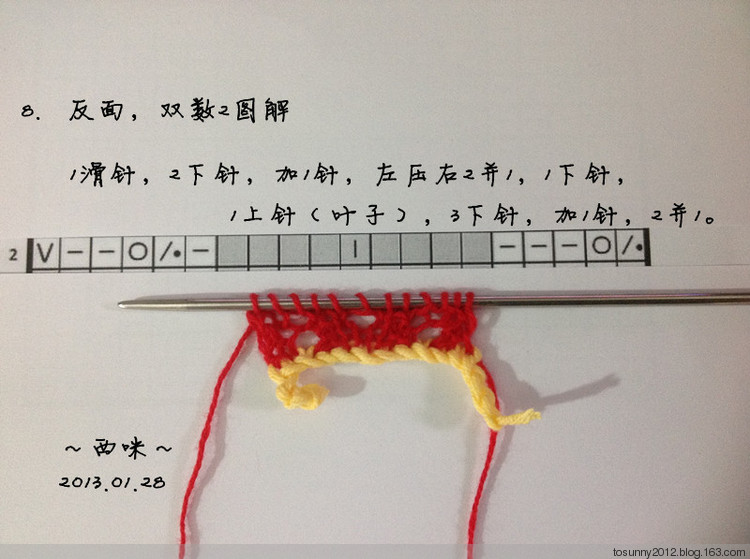 8. 反面，双数2图解
1滑针，2下针，加1针，左压右2并1，1下针，
1上针（叶子），3下针，加1针，2并1。
2 V — — O /• — | — — — O /•
～西咪～
2013.01.28
tosunny2012.blog.163.com